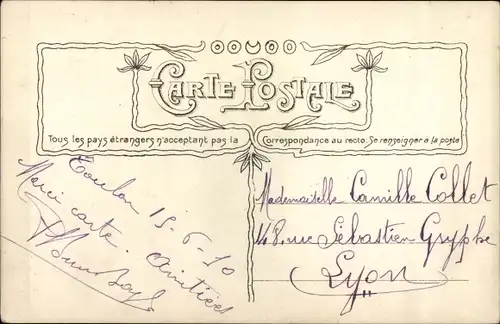 CARTE POSTALE
Tous les pays étrangers n'acceptant pas la Correspondance au recto. Se renseigner à la poste
Toulon 15-6-10
Merci carte. Amitiés
Mademoiselle Camille Collet
48, rue Sébastien Gryphe
Lyon